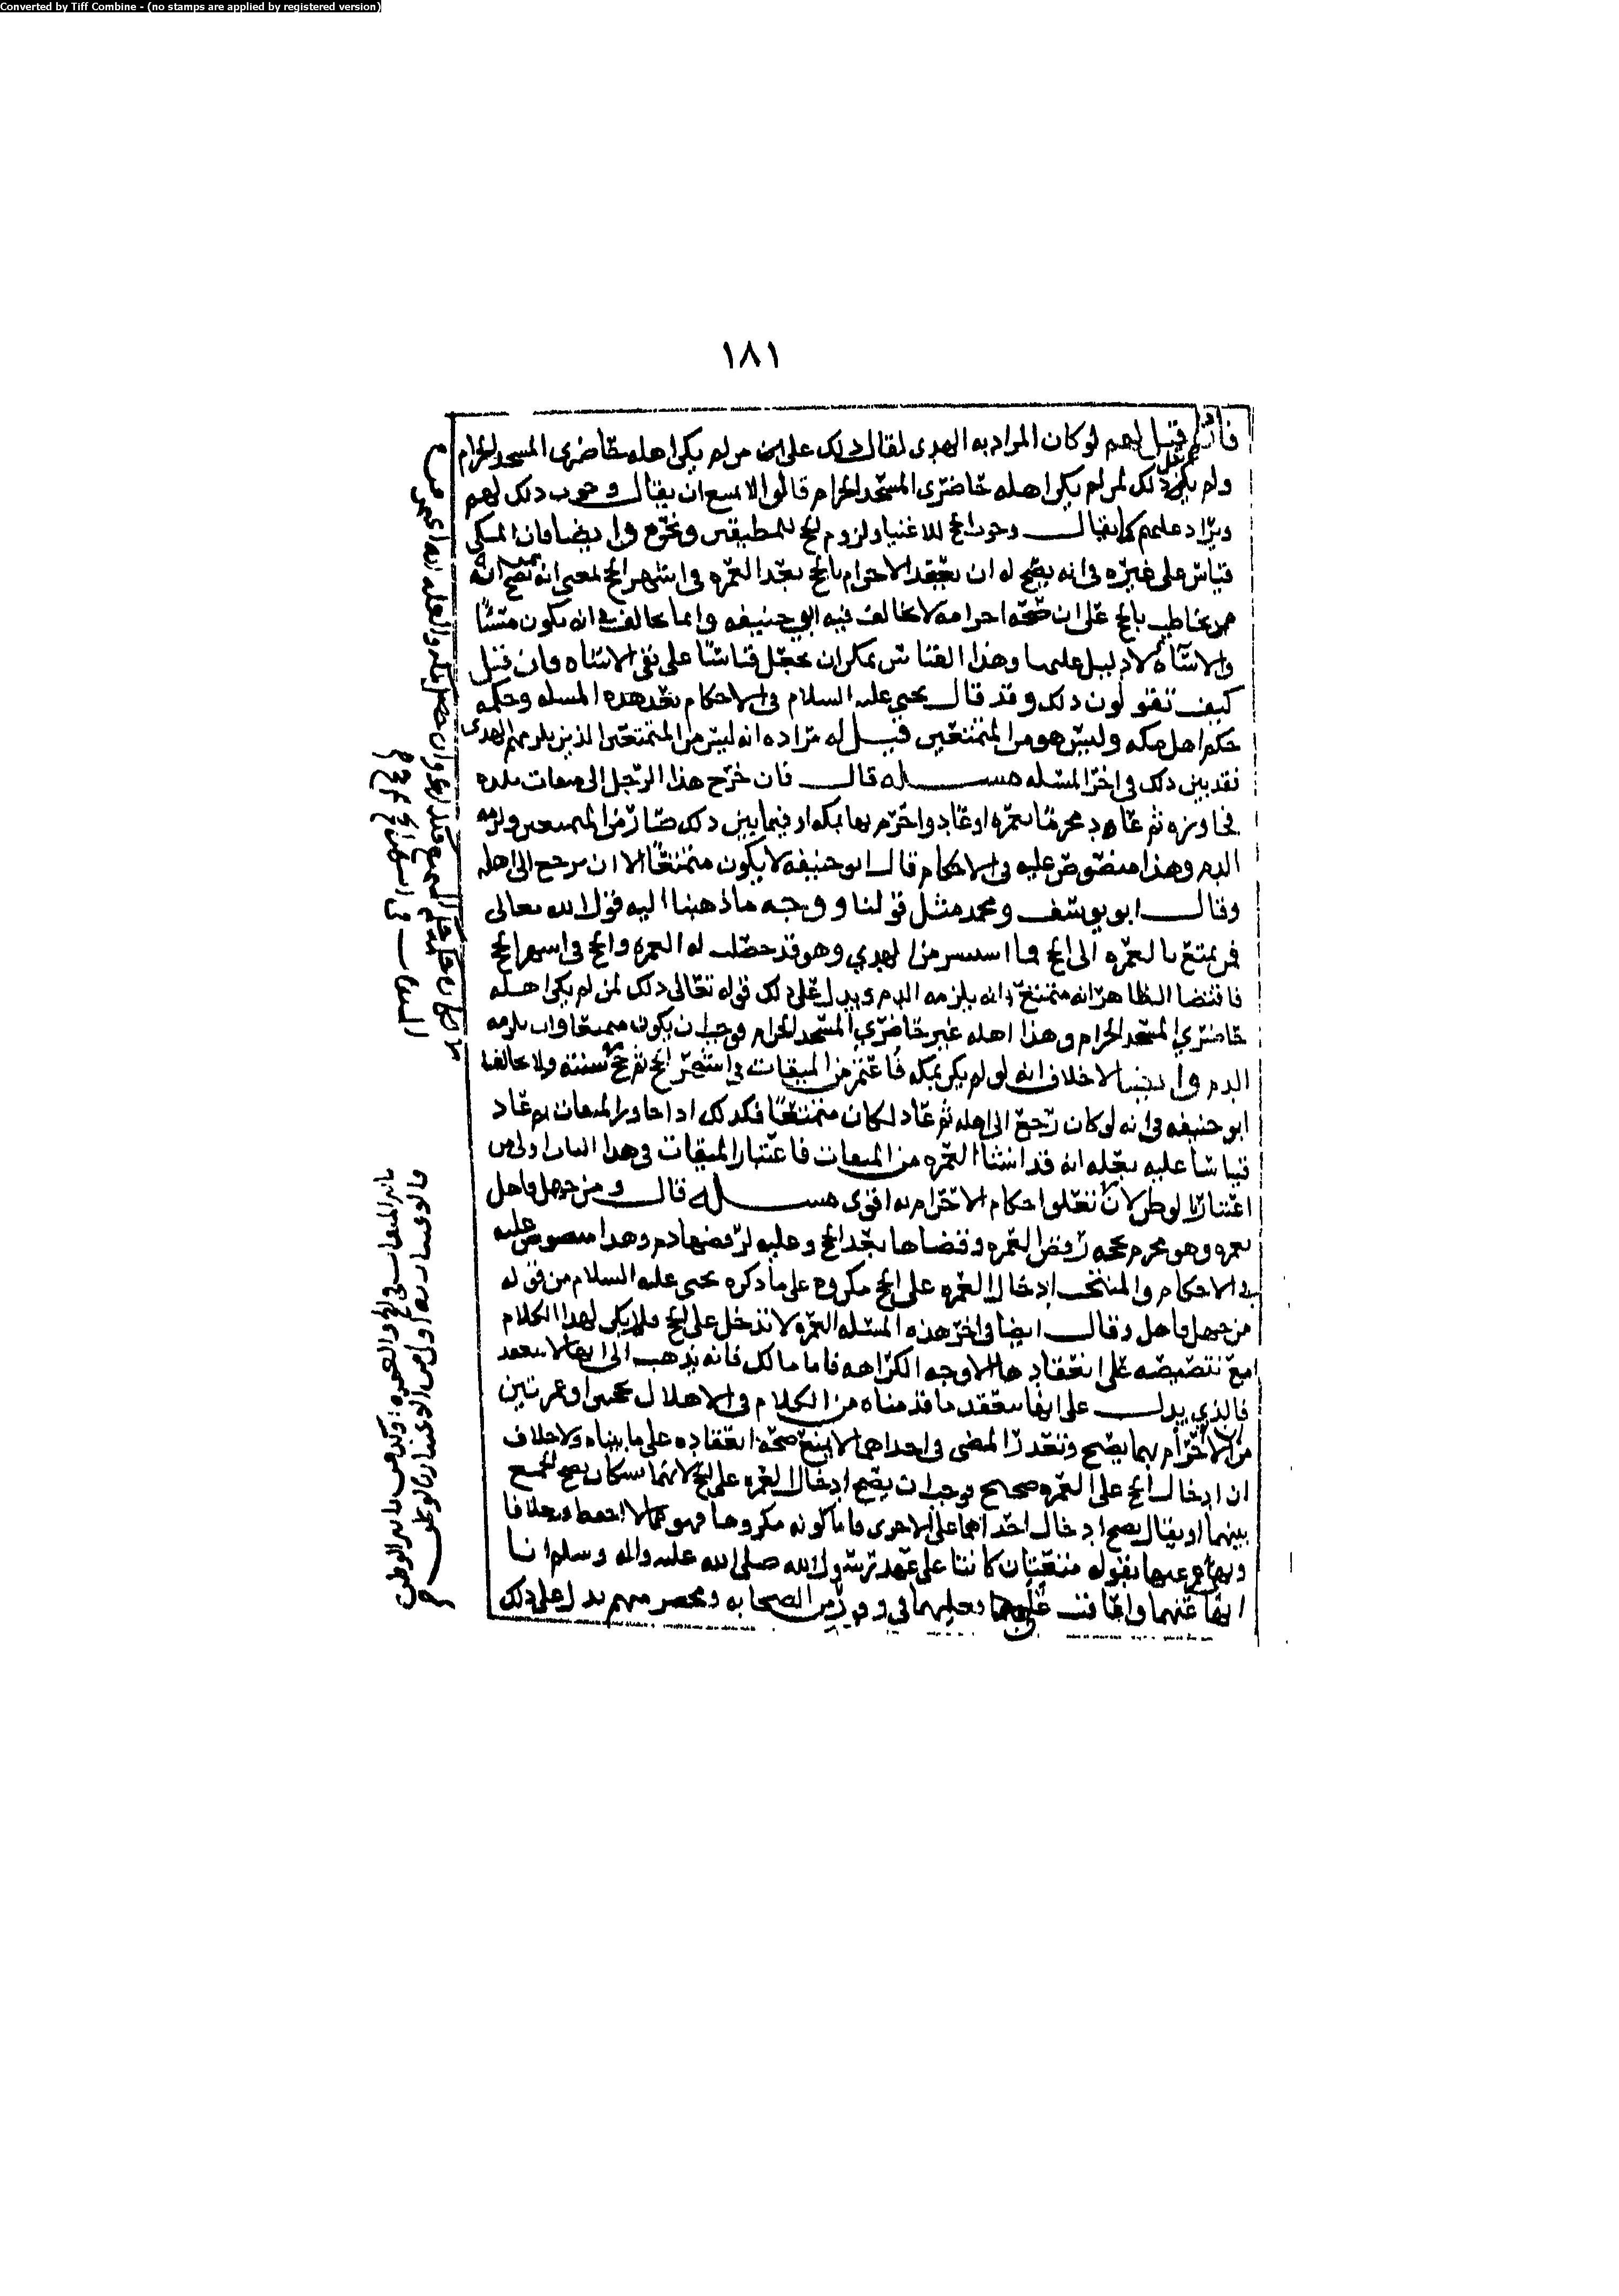 Converted by Tiff Combine - (no stamps are applied by registered version)
١٨١
قيل لهم لو كان المراد به الهدي لقال ذلك على من لم يكن اهله حاضري المسجد الحرام
ولم يكن ذلك لمن لم يكن اهله حاضري المسجد الحرام قالوا لا يمتنع ان يقال وجوب ذلك لهم
ويراد عليهم كما يقال وجوب الحج للاغنياء ولزوم الحج للمطيقين ونحوه وايضا فان المكي
قياس على غيره في انه يصح له ان يعقد الاحرام بالحج بعد العمره في اشهر الحج لمعنى انه
يخاطب بالحج على ان صحة احرامه لا يخالف فيه ابو حنيفه وانما يخالف في انه يكون مسيئا
والاساة لا دليل عليها وهذا القياس يمكن ان يجعل قياسا على نفي الاساه فان قيل
كيف تقولون ذلك وقد قال يحيى عليه السلام في الاحكام بعد هذه المسله وحكمه
حكم اهل مكه وليس هو من المتمتعين قيل له مراده انه ليس من المتمتعين الذين يلزمهم الهدى
فقد بين ذلك في اخر المسله مسله قال فان خرج هذا الرجل الى ميقات بلده
فجاوزه ثم عاد محرما بعمره او عاد واحرم بها بمكه او فيما بين ذلك صار من المتمتعين ولزمه
الدم وهذا منصوص عليه في الاحكام قال ابو حنيفه لا يكون متمتعا الا ان يرجع الى اهله
وقال ابو يوسف ومحمد مثل قولنا ووجه ما ذهبنا اليه قول الله تعالى
فمن تمتع بالعمره الى الحج فما استيسر من الهدي وهو قد حصلت له العمره والحج في اشهر الحج
فاقتضا الظاهر انه متمتع وانه يلزمه الدم ويدل على ذلك قوله تعالى ذلك لمن لم يكن اهله
حاضري المسجد الحرام وهذا اهله غير حاضري المسجد الحرام فوجب ان يكون متمتعا وان يلزمه
الدم وايضا لا خلاف انه لو لم يكن بمكه فاعتمر من الميقات في اشهر الحج ثم حج سنته ولا يخالف
ابو حنيفه في انه لو كان رجع الى اهله ثم عاد لكان متمتعا فكذلك اذا جاوز الميقات ثم عاد
قياسا عليه بعله انه قد انشأ العمره من الميقات فاعتبار الميقات في هذا الباب اولى من
اعتبار الوطن لان تعلق احكام الاحرام به اقوى مسله قال ومن جهل فاهل
بعمره وهو محرم بحجه رفض العمره وقضاها بعد الحج وعليه لرفضها دم وهذا منصوص عليه
في الاحكام والمنتخب ادخال العمره على الحج مكروه على ما ذكره يحيى عليه السلام من قوله
من جهل فاهل وقال ايضا في اخر هذه المسله العمره لا تدخل على الحج ولا يكن لهذا الكلام
مع تنصيصه على انعقادها الا وجه الكراهه فاما مالك فانه يذهب الى انها لا تنعقد
فالذي يدل على انها تنعقد ما قدمناه من الكلام في الاهلال بحجتين او عمرتين
من ان الاحرام بهما يصح وتعذر المضي في احداهما لا يمنع صحة انعقاده على ما بيناه ولا خلاف
ان ادخال الحج على العمره صحيح فوجب ان يصح ادخال العمره على الحج لانهما نسكان يصح الجمع
بينهما او يقال يصح ادخال احداهما على الاخرى فاما كونه مكروها فهو مما لا احفظ فيه خلافا
ونهي عمر عنها بقوله متعتان كانتا على عهد رسول الله صلى الله عليه واله وسلم انا
انهى عنهما واعاقب عليهما في وفور من الصحابه ومحضر منهم يدل على ذلك